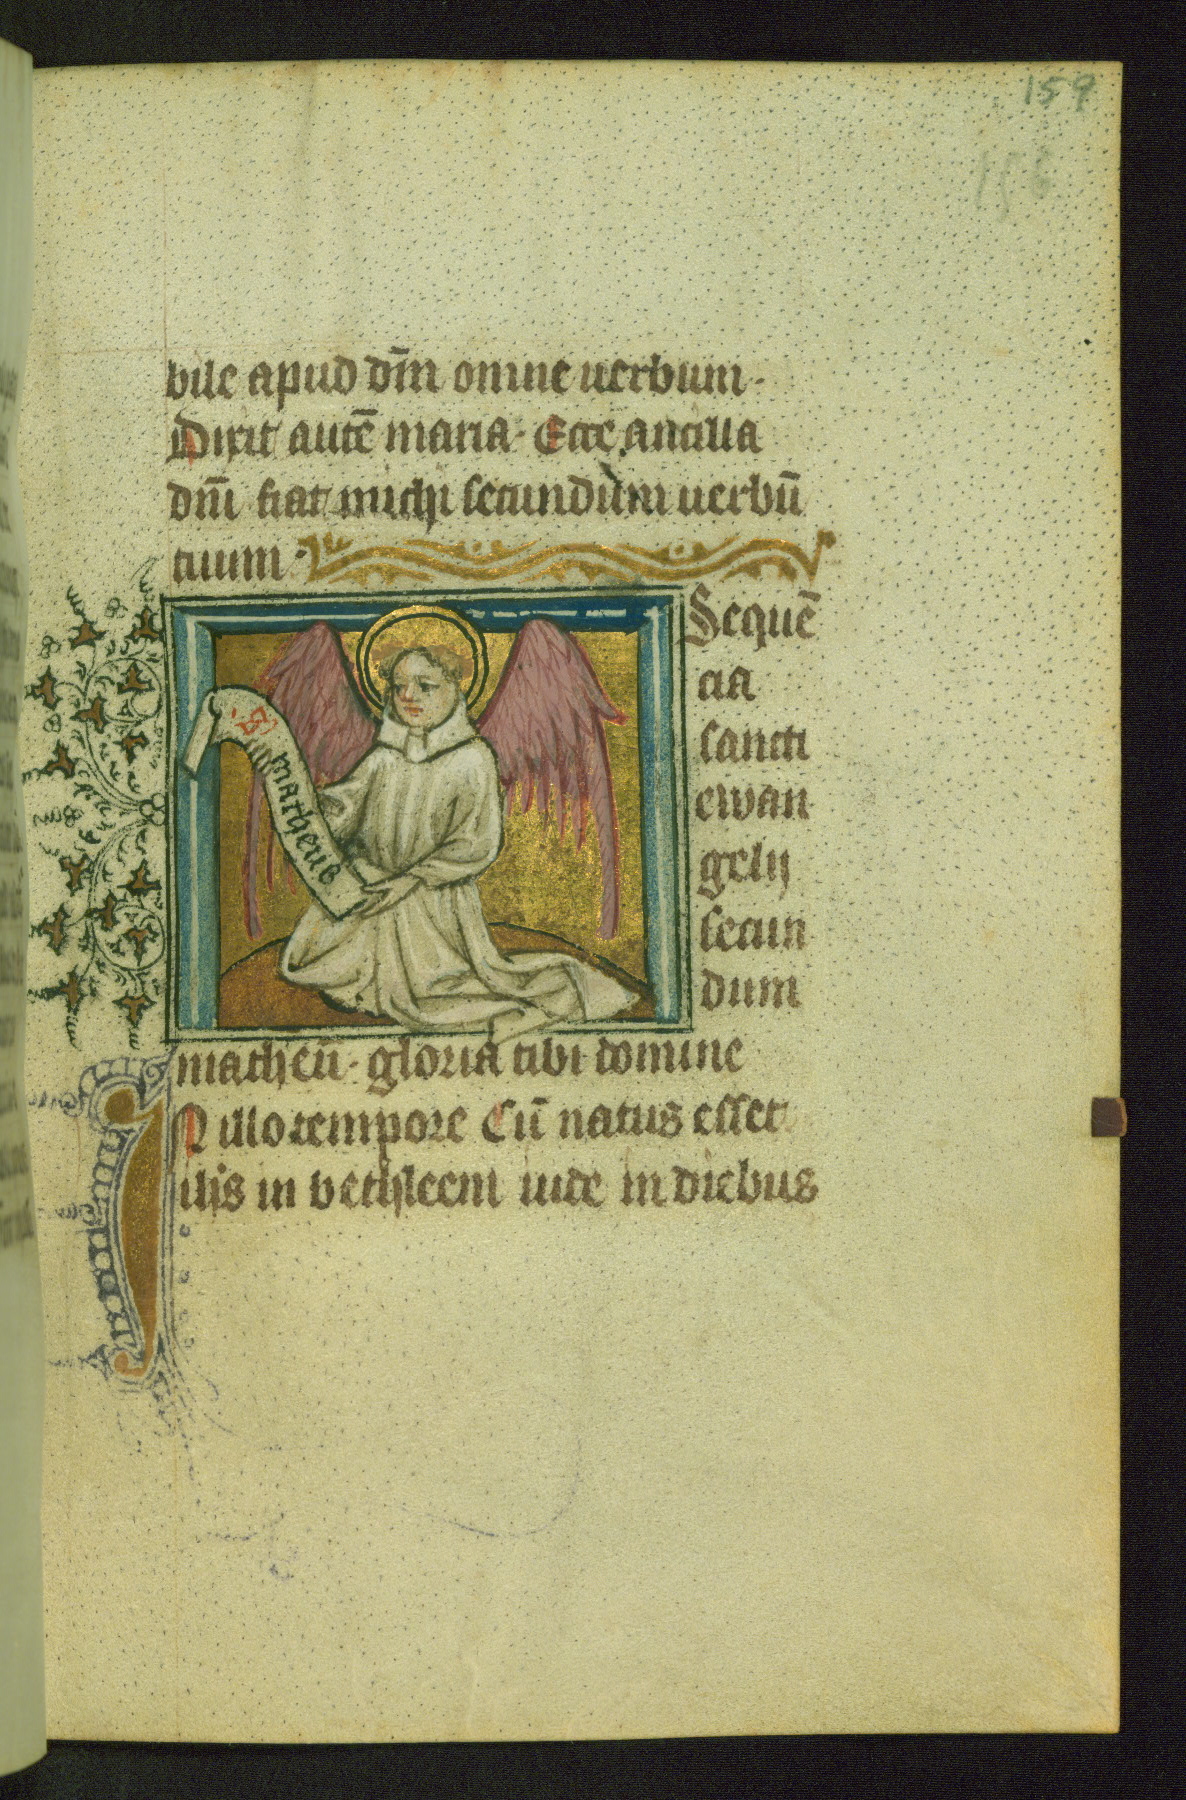 159
156
bile apud dn̄m omne uerbum·
Dixit autē maria· Ecce ancilla
dn̄i fiat michi secundum uerbū
tuum·
Sequē
cia
sancti
ewan
gelij
secun
dum
matheus
matheū· gloria tibi domine
In illo tempore Cū natus esset
ih̄s in bethleem iude in diebus